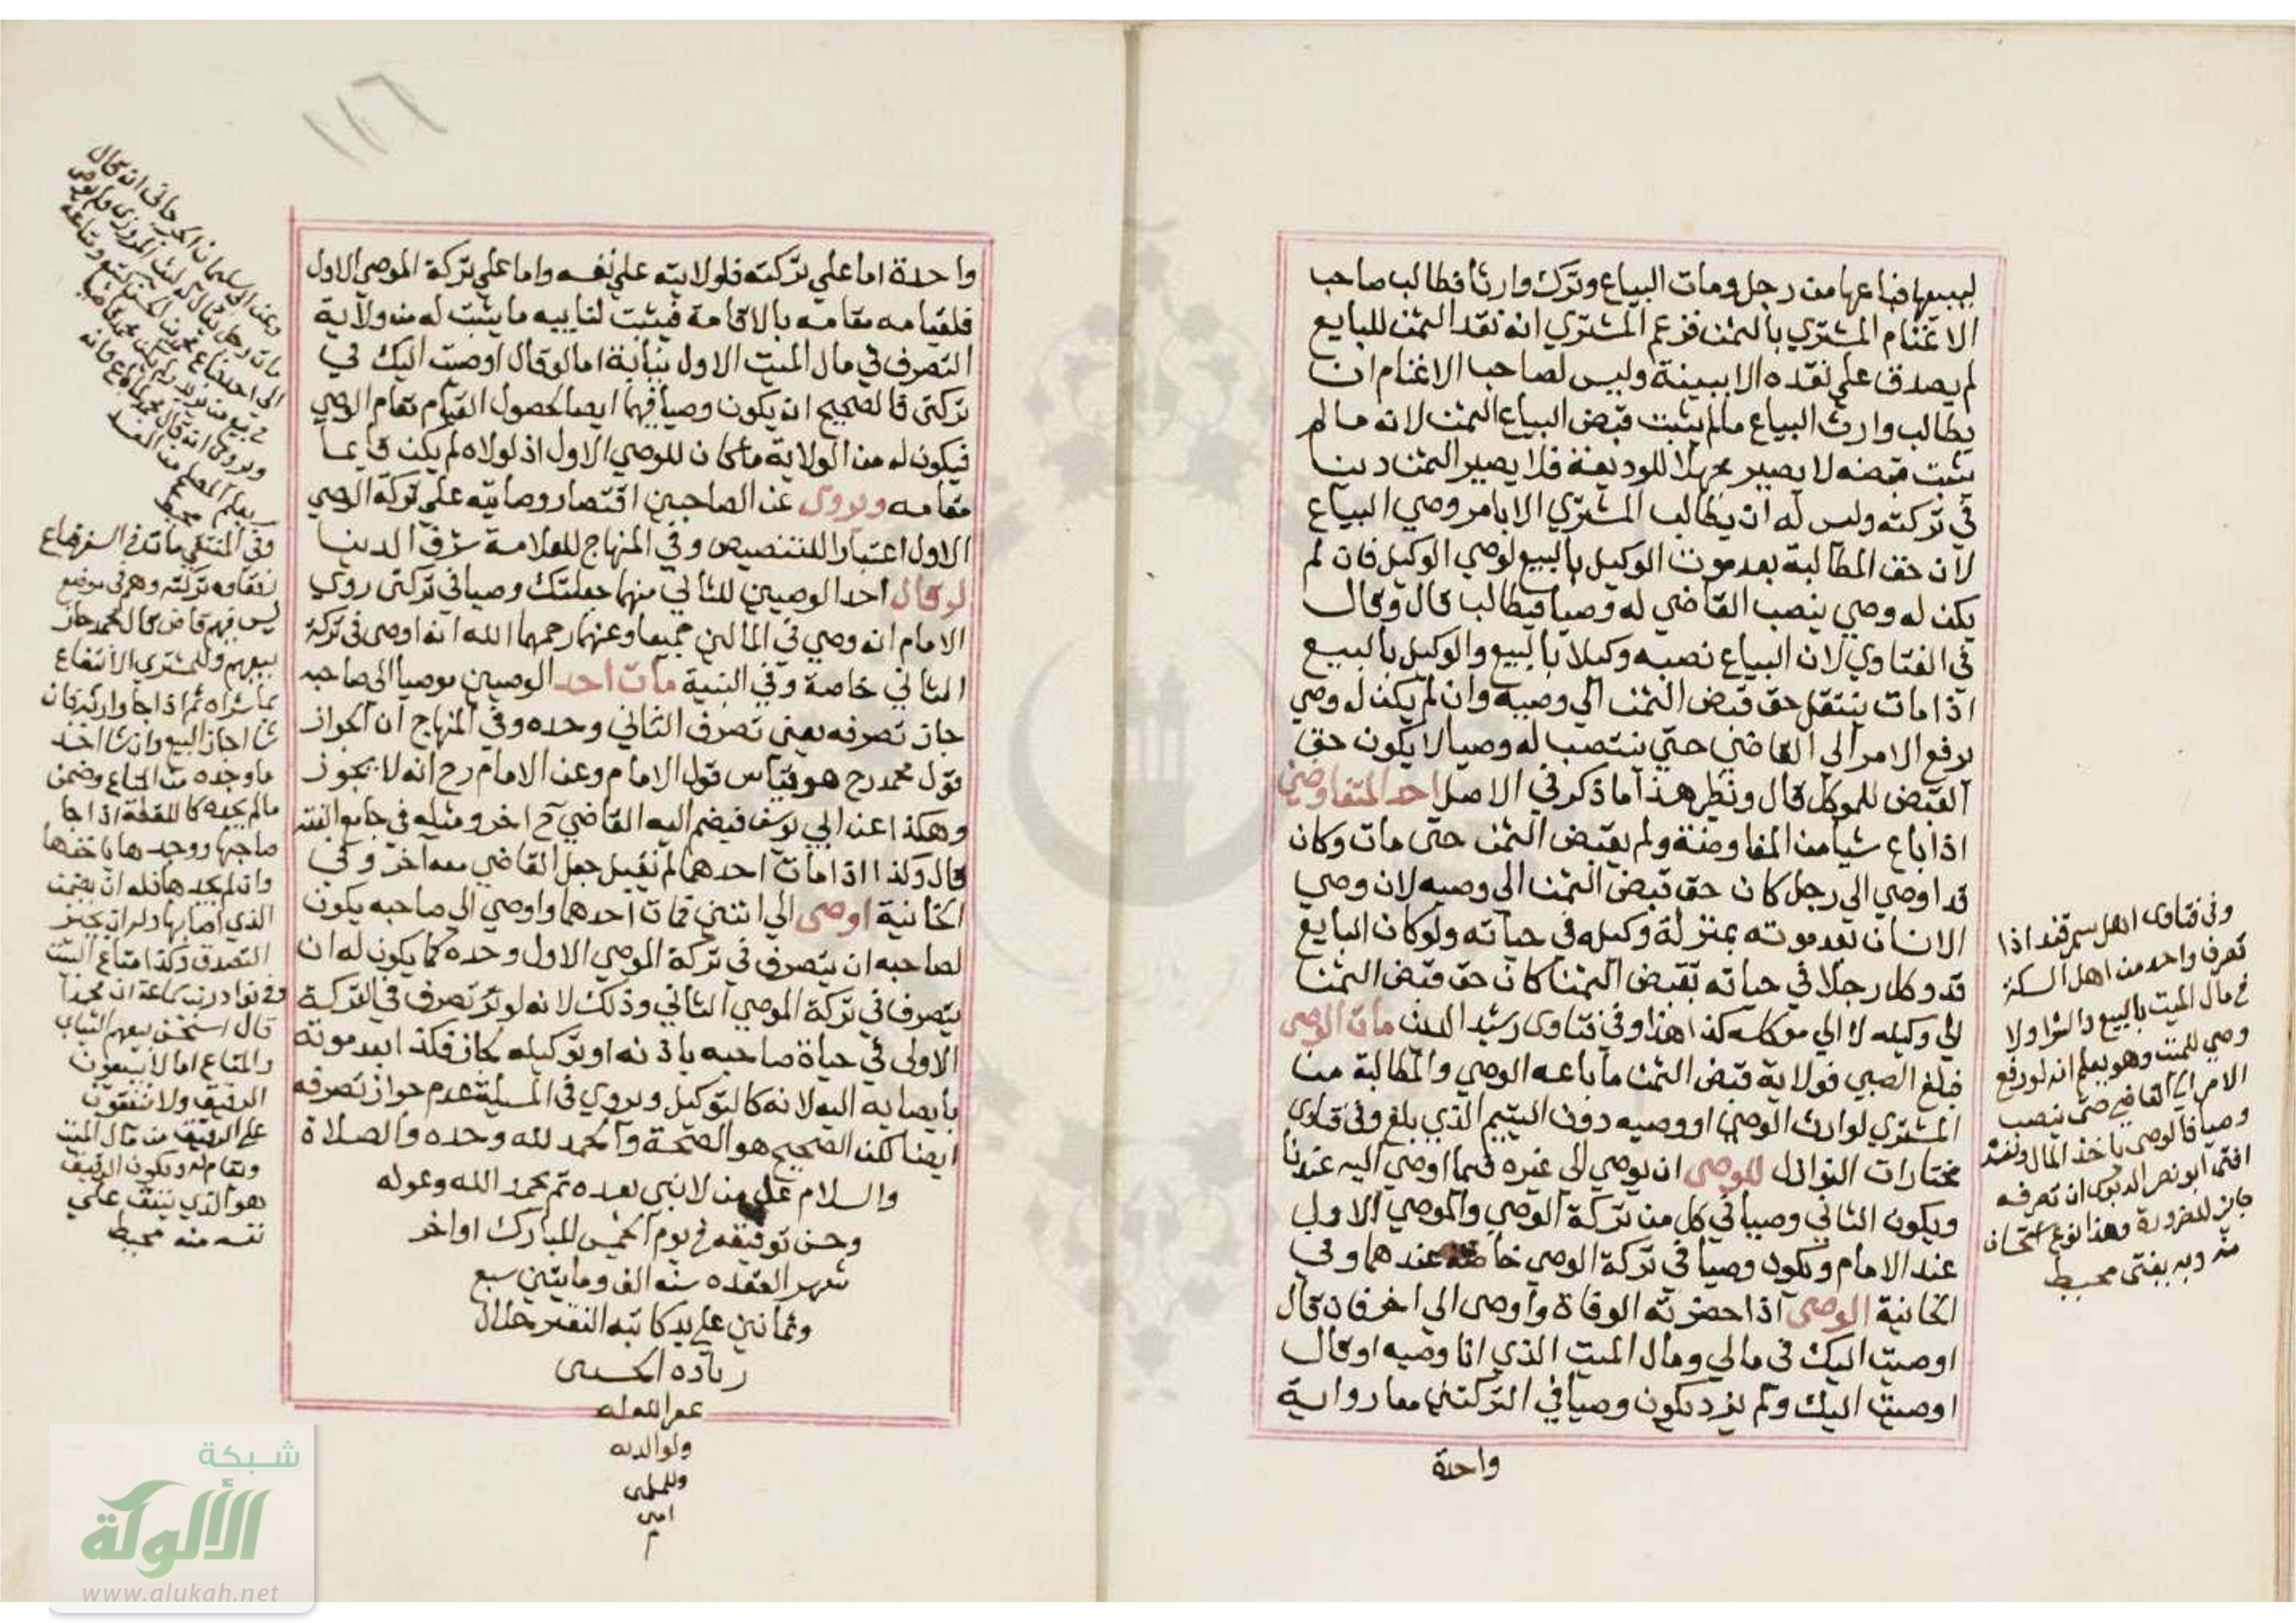 ليبيعها فباعها من رجل ومات البياع وترك وارثا فطالب صاحب
الاغنام المشتري بالثمن فزعم المشتري انه نقد الثمن للبايع
لم يصدق علي نقده الا ببينة وليس لصاحب الاغنام ان
يطالب وارث البياع مالم يثبت قبض البياع الثمن لانه مالم
يثبت قبضه لا يصير مجهلا للوديعة فلا يصير الثمن دينا
في تركته وليس له ان يطالب المشتري الا بامر وصي البياع
لان حق المطالبة بعد موت الوكيل بالبيع لوصي الوكيل فان لم
يكن له وصي ينصب القاضي له وصيا فيطالب قال وقال
في الفتاوي لان البياع نصبه وكيلا بالبيع والوكيل بالبيع
اذا مات ينتقل حق قبض الثمن الي وصيه وان لم يكن له وصي
يرفع الامر الي القاضي حتي ينتصب له وصيا لا يكون حق
القبض للموكل قال ونظير هذا ما ذكر في الاصل احد المتفاوضين
اذا باع شيا من المفاوضة ولم يقبض الثمن حتي مات وكان
قد اوصي الي رجل كان حق قبض الثمن الي وصيه لان وصي
الانسان بعد موته بمنزلة وكيله في حياته ولو كان البايع
قد وكل رجلا في حياته بقبض الثمن كان حق قبض الثمن
الي وكيله لا الي موكله كذا هذا وفي فتاوى رشيد الدين مات الوصي
فبلغ الصبي فولاية قبض الثمن ما باعه الوصي والمطالبة من
المشتري لوارث الوصي او وصيه دون اليتيم الذي بلغ وفي فتاوى
مختارات النوازل للوصي ان يوصي الي غيره فيما اوصي اليه عندنا
ويكون الثاني وصيا في كل من تركة الوصي والموصي الاول
عند الامام ويكون وصيا في تركة الوصي خاصة عندهما وفي
الخانية الوصي اذا حضرته الوفاة واوصى الي اخر فان قال
اوصيت اليك في مالي ومال الميت الذي انا وصيه او قال
اوصيت اليك ولم يزد يكون وصيا في التركتين معا رواية
واحدة
وفي فتاوى اهل سمرقند اذا
تصرف واحد من اهل السكة
في مال الميت بالبيع والشرا ولا
وصي للميت وهو يعلم انه لو رفع
الامر الي القاضي حتى ينصب
وصيا فالوصي ياخذ المال
افتى ابو نصر الدبوسي ان تصرفه
جايز للضرورة وهذا نوع استحسان
منه وبه يفتى محيط
١١٦
واحدة اما علي تركته فلولايته علي نفسه واما علي تركة الموصي الاول
فلقيامه مقامه بالاقامة فيثبت لنايبيه ما يثبت له من ولاية
التصرف في مال الميت الاول نيابة اما لو قال اوصيت اليك في
تركتي فالصحيح انه يكون وصيا فيهما ايضا لحصول القيام مقام الوصي
فيكون له من الولاية ما كان للوصي الاول اذ لولاه لم يكن قايما
مقامه ويروى عن الصاحبين اقتصار وصايته علي تركة الوصي
الاول اعتبارا للتنصيص وفي المنهاج للعلامة شرف الدين
لو قال احد الوصيين للثاني منهما جعلتك وصيا في تركتي روي
الامام انه وصي في المالين جميعا وعنهما رحمهما الله انه اوصى في تركة
الثاني خاصة وفي القنية مات احد الوصيين موصيا الي صاحبه
جاز تصرفه يعني تصرف الثاني وحده وفي المنهاج ان الجواز
قول محمد رح هو قياس قول الامام وعن الامام رح انه لا يجوز
وهكذا عن ابي يوسف فيضم اليه القاضي آخر ومثله في جامع الفقه
قال وكذا اذا مات احدهما لم يقبل جعل القاضي معه آخر وفي
الخانية اوصى الي اثنين فمات احدهما واوصي الي صاحبه يكون
لصاحبه ان يتصرف في تركة الموصي الاول وحده كما يكون له ان
يتصرف في تركة الموصي الثاني وذلك لانه لو تصرف في التركة
الاولى في حياة صاحبه باذنه او توكيله جاز فكذا بعد موته
بايصايه اليه لانه كالتوكيل ويروي في المسيلة عدم جواز تصرفه
ايضا لكن الصحيح هو الصحة والحمد لله وحده والصلاة
والسلام على من لا نبي بعده تم بحمد الله وعونه
وحسن توفيقه في يوم الخميس المبارك اواخر
شهر القعده سنه الف ومايتين سبع
وثمانين علي يد كاتبه الفقير جلال
زياده الحسيني
غفر الله له
ولوالديه
وللمسلمين
امين
م
وعن ابي سليمان الجوزجاني انه قال
مات رجل يقال له ليث المروزي ولم يوصي
الي احد فباع محمد بن الحسن كتبه ومتاعه
ويروي انه قال
يعلم المصلح من المفسد
محيط
وفي المنتقى مات في السفر فباع
رفقاوه تركته وهم في موضع
ليس فيهم قاض قال محمد جاز
بيعهم وللمشتري الانتفاع
بما شراه ثم اذا جا وارثه فان
شا اجاز البيع وان شا اخذ
ما وجده من المتاع وضمن
مالم يجده كاللقطة اذا جا
صاحبها ووجدها ياخذها
وان لم يجدها فله ان يضمن
الذي اصابها وله ان يجيز
التصدق وكذا متاع البيت
وفي نوادر ابن سماعة ان محمدا
قال استحسن بيعهم الثياب
والمتاع اما لا يبيعون
الرقيق ولا ينفقون
علي الرقيق من مال الميت
ويكون الرقيق
هو الذي ينفق علي
نفسه منه محيط
شبكة
الألوكة
www.alukah.net